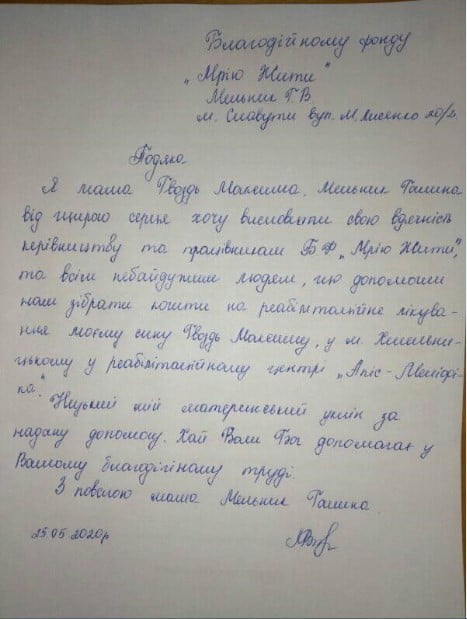 Благодійному фонду
„Мрію Жити"
Мельник Г.В.
м. Славути вул. М.Лисенко 20/2.
Подяка
Я мама Гвоздь Максима, Мельник Галина
від щирого серця хочу висловити свою вдячність
керівництву та працівникам Б.Ф „Мрію Жити",
та всім небайдужим людям, що допомогли
нам зібрати кошти на реабілітаційне лікува-
ння моєму сину Гвоздь Максиму, у м. Хмельни-
цькому у реабілітаційному центрі „Апіс-
ка".
Низький мій материнський уклін за
надану допомогу. Хай Вам Бог допомагає у
Вашому благодійному труді.
З повагою мама Мельник Галина.
25.05.2020р